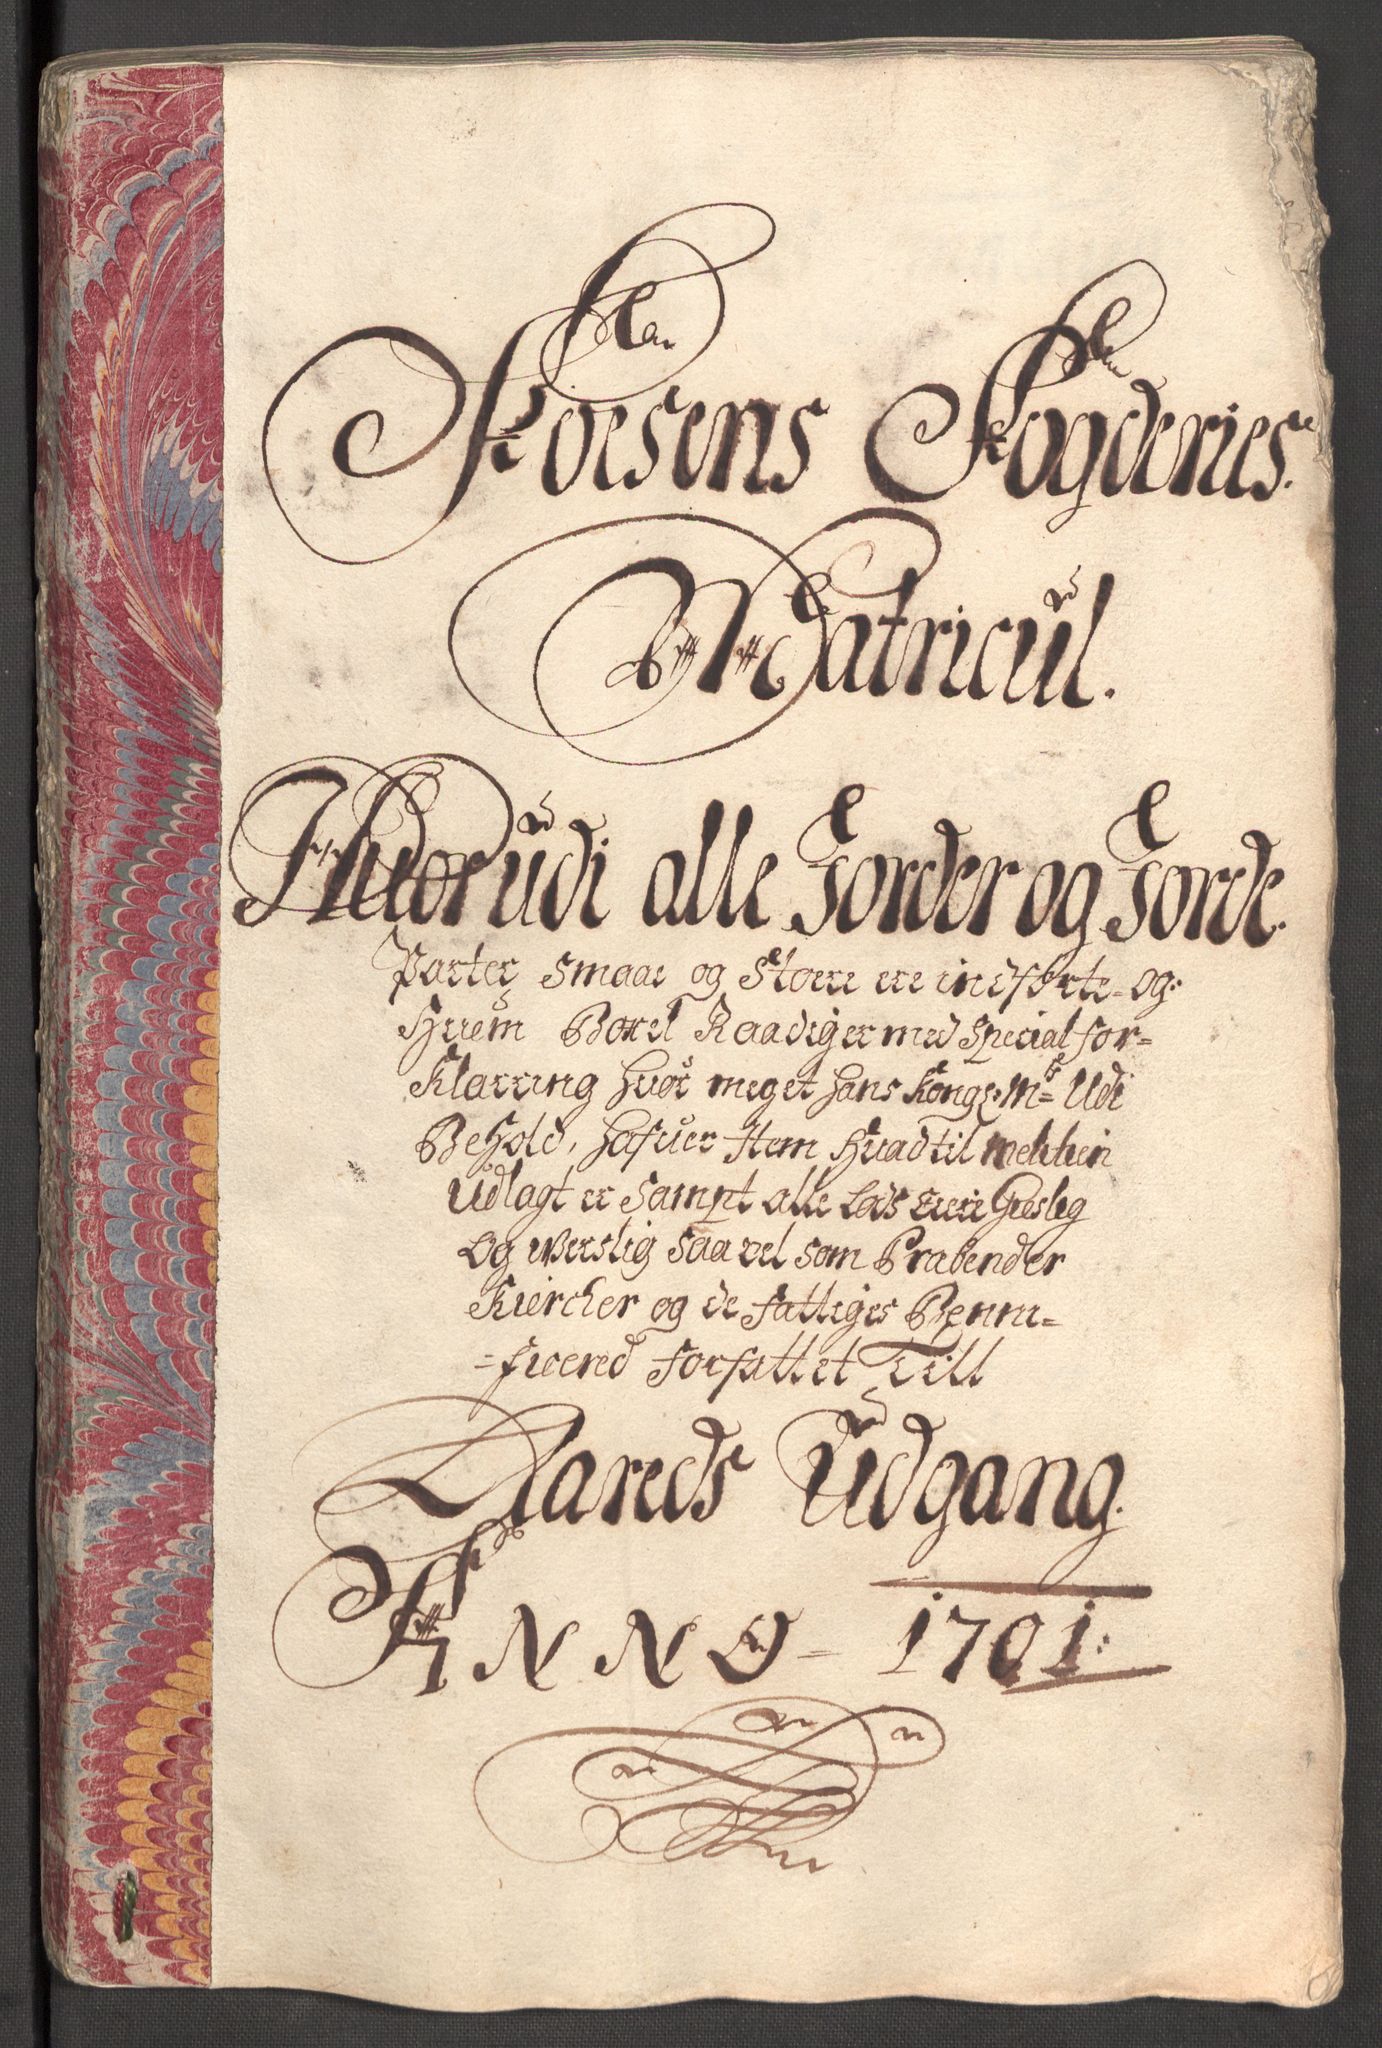 Fosens Fogderies
Matricul.
Huor udi alle Jorder og Jorde
Parter smaae og Stoere ere indførte og
Huem Boxel Raadiger med Special for=
Klarring huor meget hans Kongl: Mtz Udi
Behold, hafuer Item Huad til
Udlagt er Sampt alle Lods Eiere Giestlig
Og Werslig saa vel som Præbender
Kiercher og de fattiges Benni=
=ficered forfattet Till
Aareds Udgang.
ANNO = 1701: